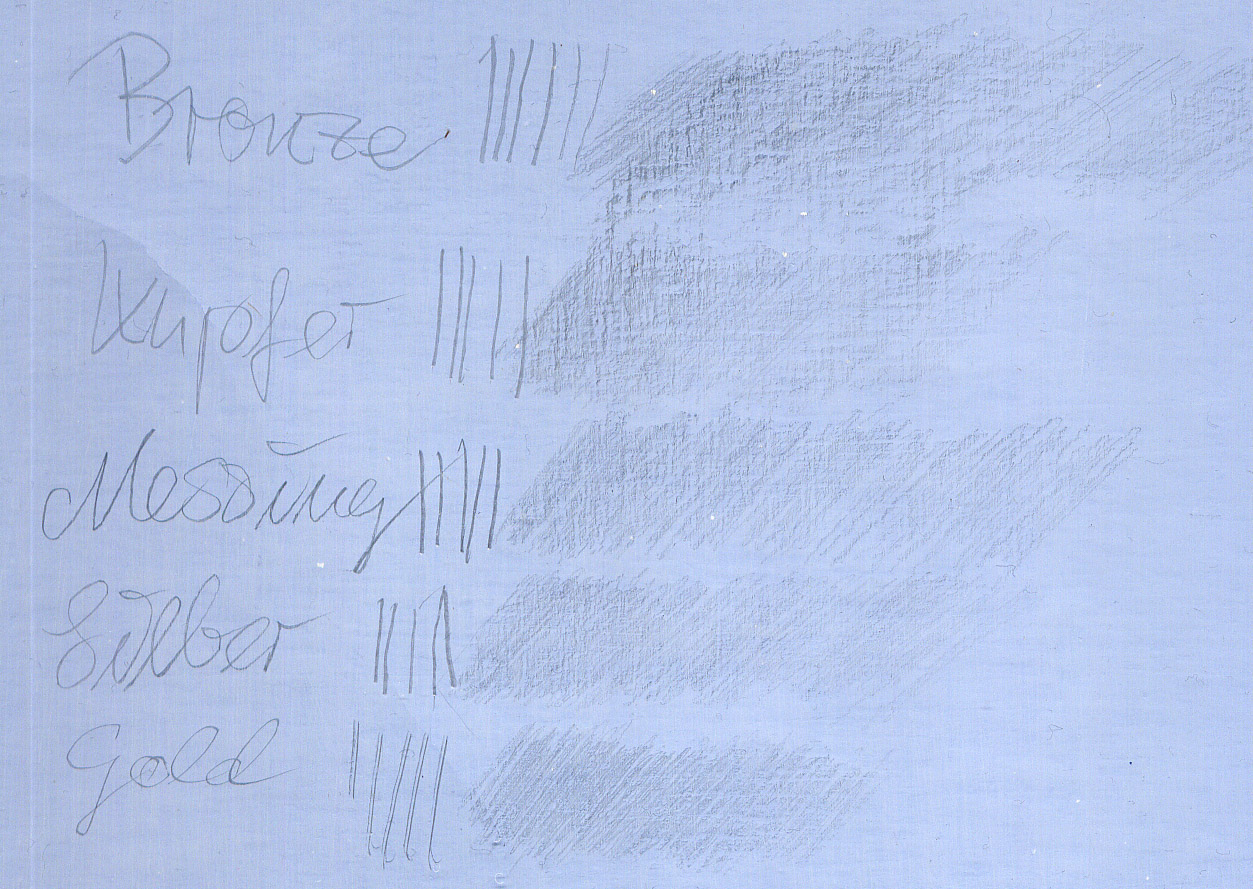 Bronze
Kupfer
Messing
Silber
Gold